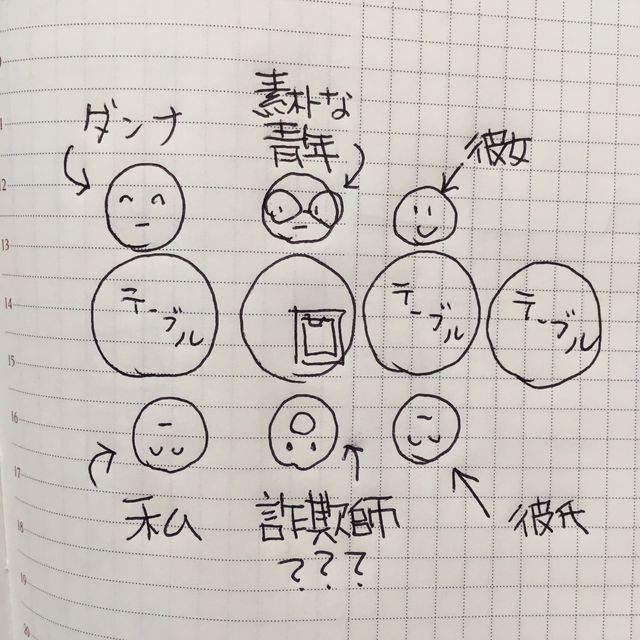 ダンナ
素朴な
青年
彼女
12
13
テーブル
テーブル
テーブル
14
15
16
17
私
詐欺師
???
彼氏
18
19
20